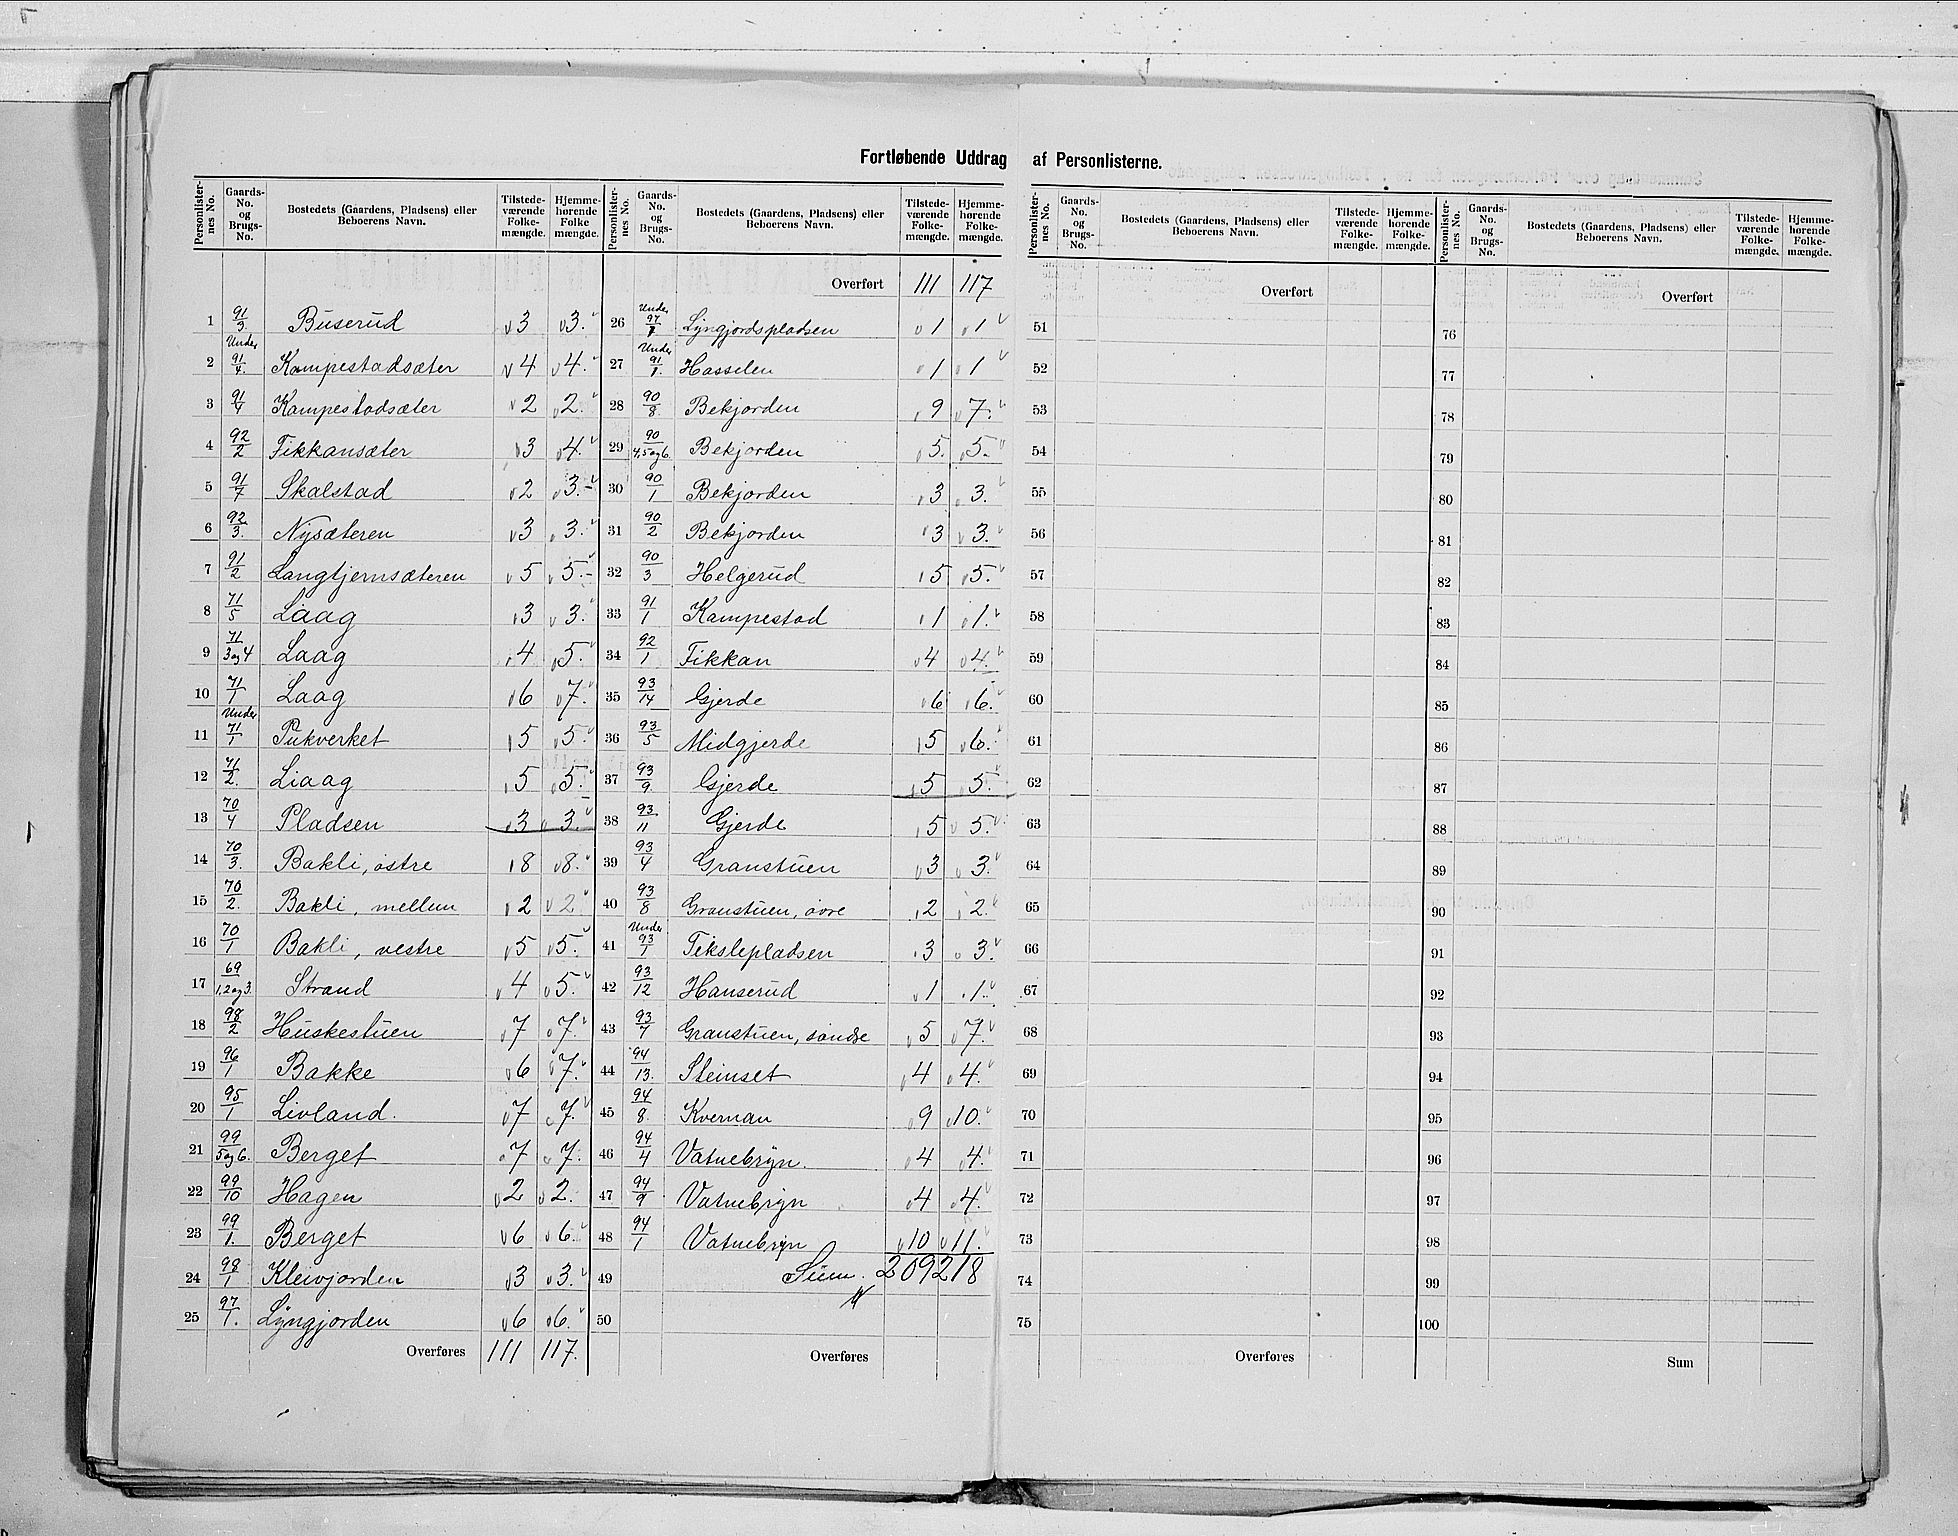 Fortløbende Uddrag af Personlisterne.
Personlisternes No. | Gaards-No. og Brugs-No. | Bostedets (Gaardens, Pladsens) eller Beboerens Navn. | Tilstedeværende Folkemængde. | Hjemmehørende Folkemængde.
1 | 91/3. | Buserud | 3 | 3.
2 | Under 91/4. | Kampestadsæter | 4 | 4.
3 | 91/4 | Kampestadsæter | 2 | 2.
4 | 92/2 | Fikkansæter | 3 | 4.
5 | 91/7 | Skalstad | 2 | 3.
6 | 92/3. | Nysæteren | 3 | 3.
7 | 91/2 | Langtjernsæteren | 5 | 5.
8 | 71/5 | Laag | 3 | 3.
9 | 71/3 og 4 | Laag | 4 | 5.
10 | 71/1 | Laag | 6 | 7.
11 | Under 71/1 | Pukverket | 5 | 5.
12 | 71/2. | Liaag | 5 | 5.
13 | 70/4 | Pladsen | 3 | 3.
14 | 70/3. | Bakli, østre | 8 | 8.
15 | 70/2. | Bakli, mellem | 2 | 2
16 | 70/1 | Bakli, vestre | 5 | 5.
17 | 69/1,2 og 3. | Strand | 4 | 5.
18 | 98/2 | Huskestuen | 7 | 7.
19 | 96/1 | Bakke | 6 | 7.
20 | 95/1 | Livland. | 7 | 7.
21 | 99/5 og 6. | Berget | 7 | 7.
22 | 99/10 | Hagen | 2 | 2.
23 | 99/1. | Berget | 6 | 6.
24 | 98/1 | Kleivjorden | 3 | 3.
25 | 97/1. | Lyngjorden | 6 | 6.
Overføres | 111 | 117.
Personlisternes No. | Gaards-No. og Brugs-No. | Bostedets (Gaardens, Pladsens) eller Beboerens Navn. | Tilstedeværende Folkemængde. | Hjemmehørende Folkemængde.
Overført | 111 | 117
26 | Under 97/1 | Lyngjordspladsen | 1 | 1
27 | Under 91/1. | Hasselen | 1 | 1
28 | 90/8. | Bekjorden | 9 | 7.
29 | 90/4,5 og 6. | Bekjorden | 5. | 5.
30 | 90/1 | Bekjorden | 3 | 3.
31 | 90/2 | Bekjorden | 3 | 3.
32 | 90/3 | Helgerud | 5 | 5.
33 | 91/1 | Kampestad | 1 | 1.
34 | 92/1 | Fikkan | 4 | 4.
35 | 93/14 | Gjerde | 6 | 6.
36 | 93/5 | Midgjerde | 5 | 6.
37 | 93/9. | Gjerde | 5 | 5.
38 | 93/11 | Gjerde | 5 | 5.
39 | 93/4 | Granstuen | 3 | 3.
40 | 93/8 | Granstuen, øvre | 2 | 2.
41 | Under 93/1 | Tekslepladsen | 3 | 3.
42 | 93/12 | Hanserud | 1 | 1.
43 | 93/7 | Granstuen, søndre | 5 | 7.
44 | 94/13. | Steinset | 4 | 4.
45 | 94/8. | Kvernan | 9 | 10.
46 | 94/4 | Vatnebryn. | 4 | 4.
47 | 94/9 | Vatnebryn | 4 | 4.
48 | 94/1 | Vatnebryn | 10 | 11.
49 | Sum. | 209 | 218
50
Overføres
Personlisternes No. | Gaards-No. og Brugs-No. | Bostedets (Gaardens, Pladsens) eller Beboerens Navn. | Tilstedeværende Folkemængde. | Hjemmehørende Folkemængde.
Overført
51
52
53
54
55
56
57
58
59
60
61
62
63
64
65
66
67
68
69
70
71
72
73
74
75
Overføres
Personlisternes No. | Gaards-No. og Brugs-No. | Bostedets (Gaardens, Pladsens) eller Beboerens Navn. | Tilstedeværende Folkemængde. | Hjemmehørende Folkemængde.
Overført
76
77
78
79
80
81
82
83
84
85
86
87
88
89
90
91
92
93
94
95
96
97
98
99
100
Sum